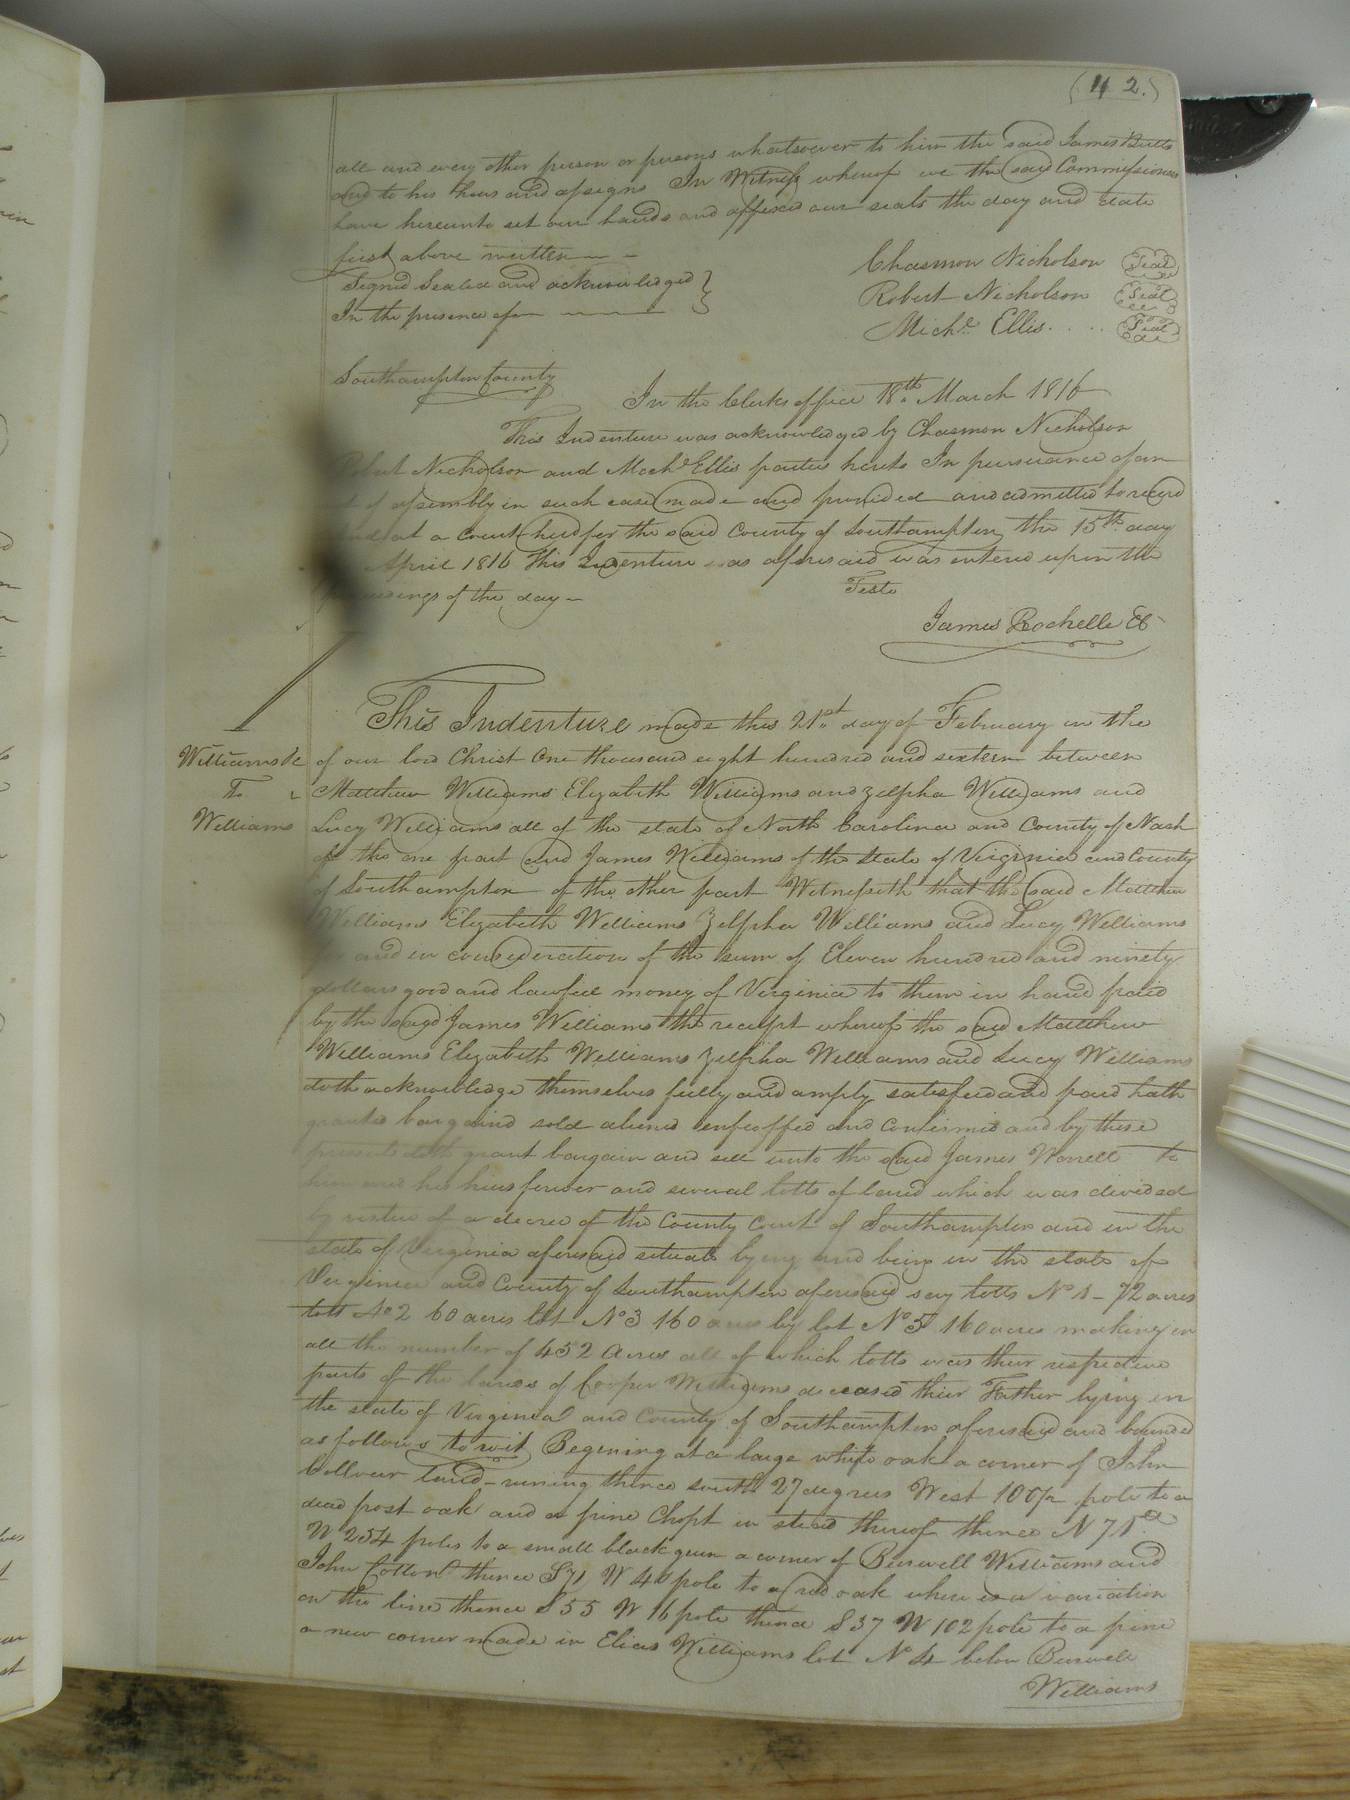 (112.)
all and every other person or persons whatsoever to him the said James Butts
and to his heirs and assigns In Witness whereof we the said Commissioners
have hereunto set our hands and affixed our seals the day and date
first above written
Signed Sealed and acknowledged
In the presence of
Chasmon Nicholson Seal
Robert Nicholson Seal
Michl. Ellis.... Seal
Southampton County
In the Clerks office 18th. March 1816
This Indenture was acknowledged by Chasmon Nicholson
Nicholson and Michl Ellis parties hereto In pursuance of an
of assembly in such case made and provided and admitted to record
at a Court held for the said County of Southampton the 15th day
April 1816 This Indenture as aforesaid was entered upon the
of the day
Teste
James Rochelle CC
This Indenture made this 21st. day of February in the
Williams &c
To
Williams
of our lord Christ One thousand eight hundred and sixteen between
Matthew Williams Elizabeth Williams and Zelpha Williams and
Lucy Williams all of the state of North Carolina and County of Nash
of the one part and James Williams of the State of Virginia and County
of Southampton of the other part Witnesseth that the said Matthew
Williams Elizabeth Williams Zelpha Williams and Lucy Williams
and in consideration of the sum of Eleven hundred and ninety
dollars good and lawfull money of Virginia to them in hand paid
by the said James Williams the receipt whereof the said Matthew
Williams Elizabeth Williams Zelpha Williams and Lucy Williams
doth acknowledge themselves fully and amply satisfied and paid hath
granted bargaind sold aliened enfeoffed and confirmed and by these
presents doth grant bargain and sell unto the said James Worrell to
him and his heirs forever and several lotts of land which was divided
by virtue of a decree of the County Court of Southampton and in the
state of Virginia aforesaid situate lying and being in the state of
Virginia and County of Southampton aforesaid say lotts No 1 - 72 acres
lott No 2 60 acres lot No 3 160 acres by lot No 5 160 acres making in
all the number of 452 Acres all of which lotts was their respective
parts of the lands of Cooper Williams deceased their Father lying in
the state of Virginia and County of Southampton aforesaid and bounded
as follows to wit Begining at a large white oak a corner of John
land runing thence south 27 degrees West 100 pole to a
dead post oak and a pine Chopt in stead thereof thence N 71d.
W 254 poles to a small black gum a corner of Burwell Williams and
John Cotton thence S71 W 40 pole to a red oak where is a variation
on the line thence S55 W 16 pole thence S37 W 102 pole to a pine
a new corner made in Elias Williams lot No 4 below Burwell
Williams